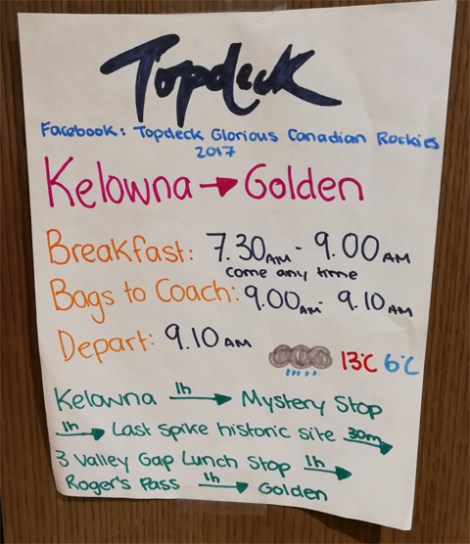 Topdeck
Facebook: Topdeck Glorious Canadian Rockies
2017
Kelowna → Golden
Breakfast: 7.30AM - 9.00AM
come any time
Bags to Coach: 9.00AM - 9.10AM
Depart: 9.10AM
13°C 6°C
Kelowna 1h → Mystery Stop
1h → Last Spike historic site 30m →
3 Valley Gap Lunch Stop 1h →
Roger's Pass 1h → Golden